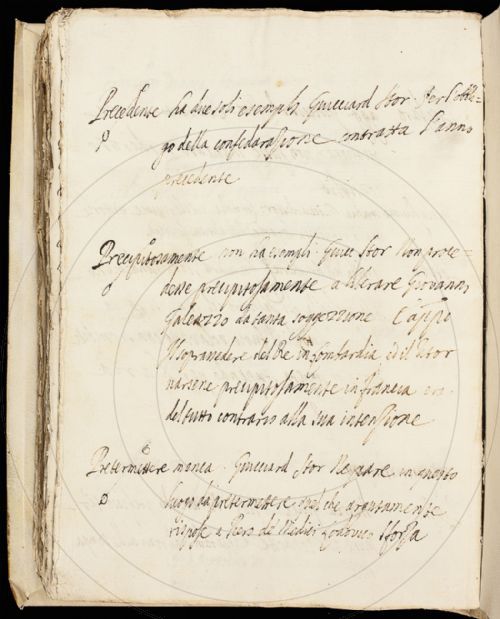 Precedente ha due soli esempli. Guicciard Stor. per l'obbli=
go della confederazione contratta l'anno
precedente
Precipitosamente non ha esempli. Guicc Stor Non proce=
desse precipitosamente a liberare Giovanni
Galeazzo da tanta soggezzione
del Re in Lombardia ed il ritor
narsene precipitosamente in francia era
del tutto contrario alla sua intenzione
Pretermettere manca. Guicciard Stor Ne pare in questo
luogo da pretermettere quel che argutamente
rispose a Piero de Medici Lodovico Sforza